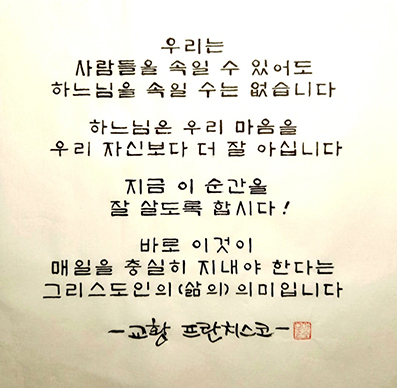 우리는
사람들을 속일 수 있어도
하느님을 속일 수는 없습니다
하느님은 우리 마음을
우리 자신보다 더 잘 아십니다
지금 이 순간을
잘 살도록 합시다!
바로 이것이
매일을 충실히 지내야 한다는
그리스도인의(삶의) 의미입니다
-교황 프란치스코-